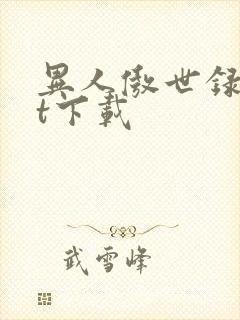 異人傲世録
t下載
武雪峰